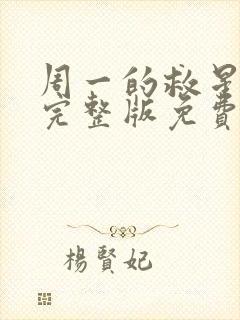 周一的救星
完整版免費
楊賢妃